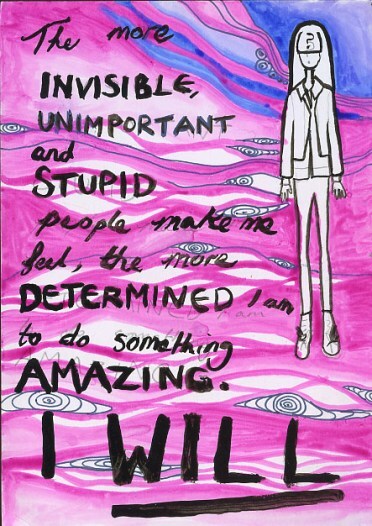 The more
INVISIBLE,
UNIMPORTANT
and
STUPID
people make me
feel, the more
DETERMINED I am
to do something
AMAZING.
I WILL